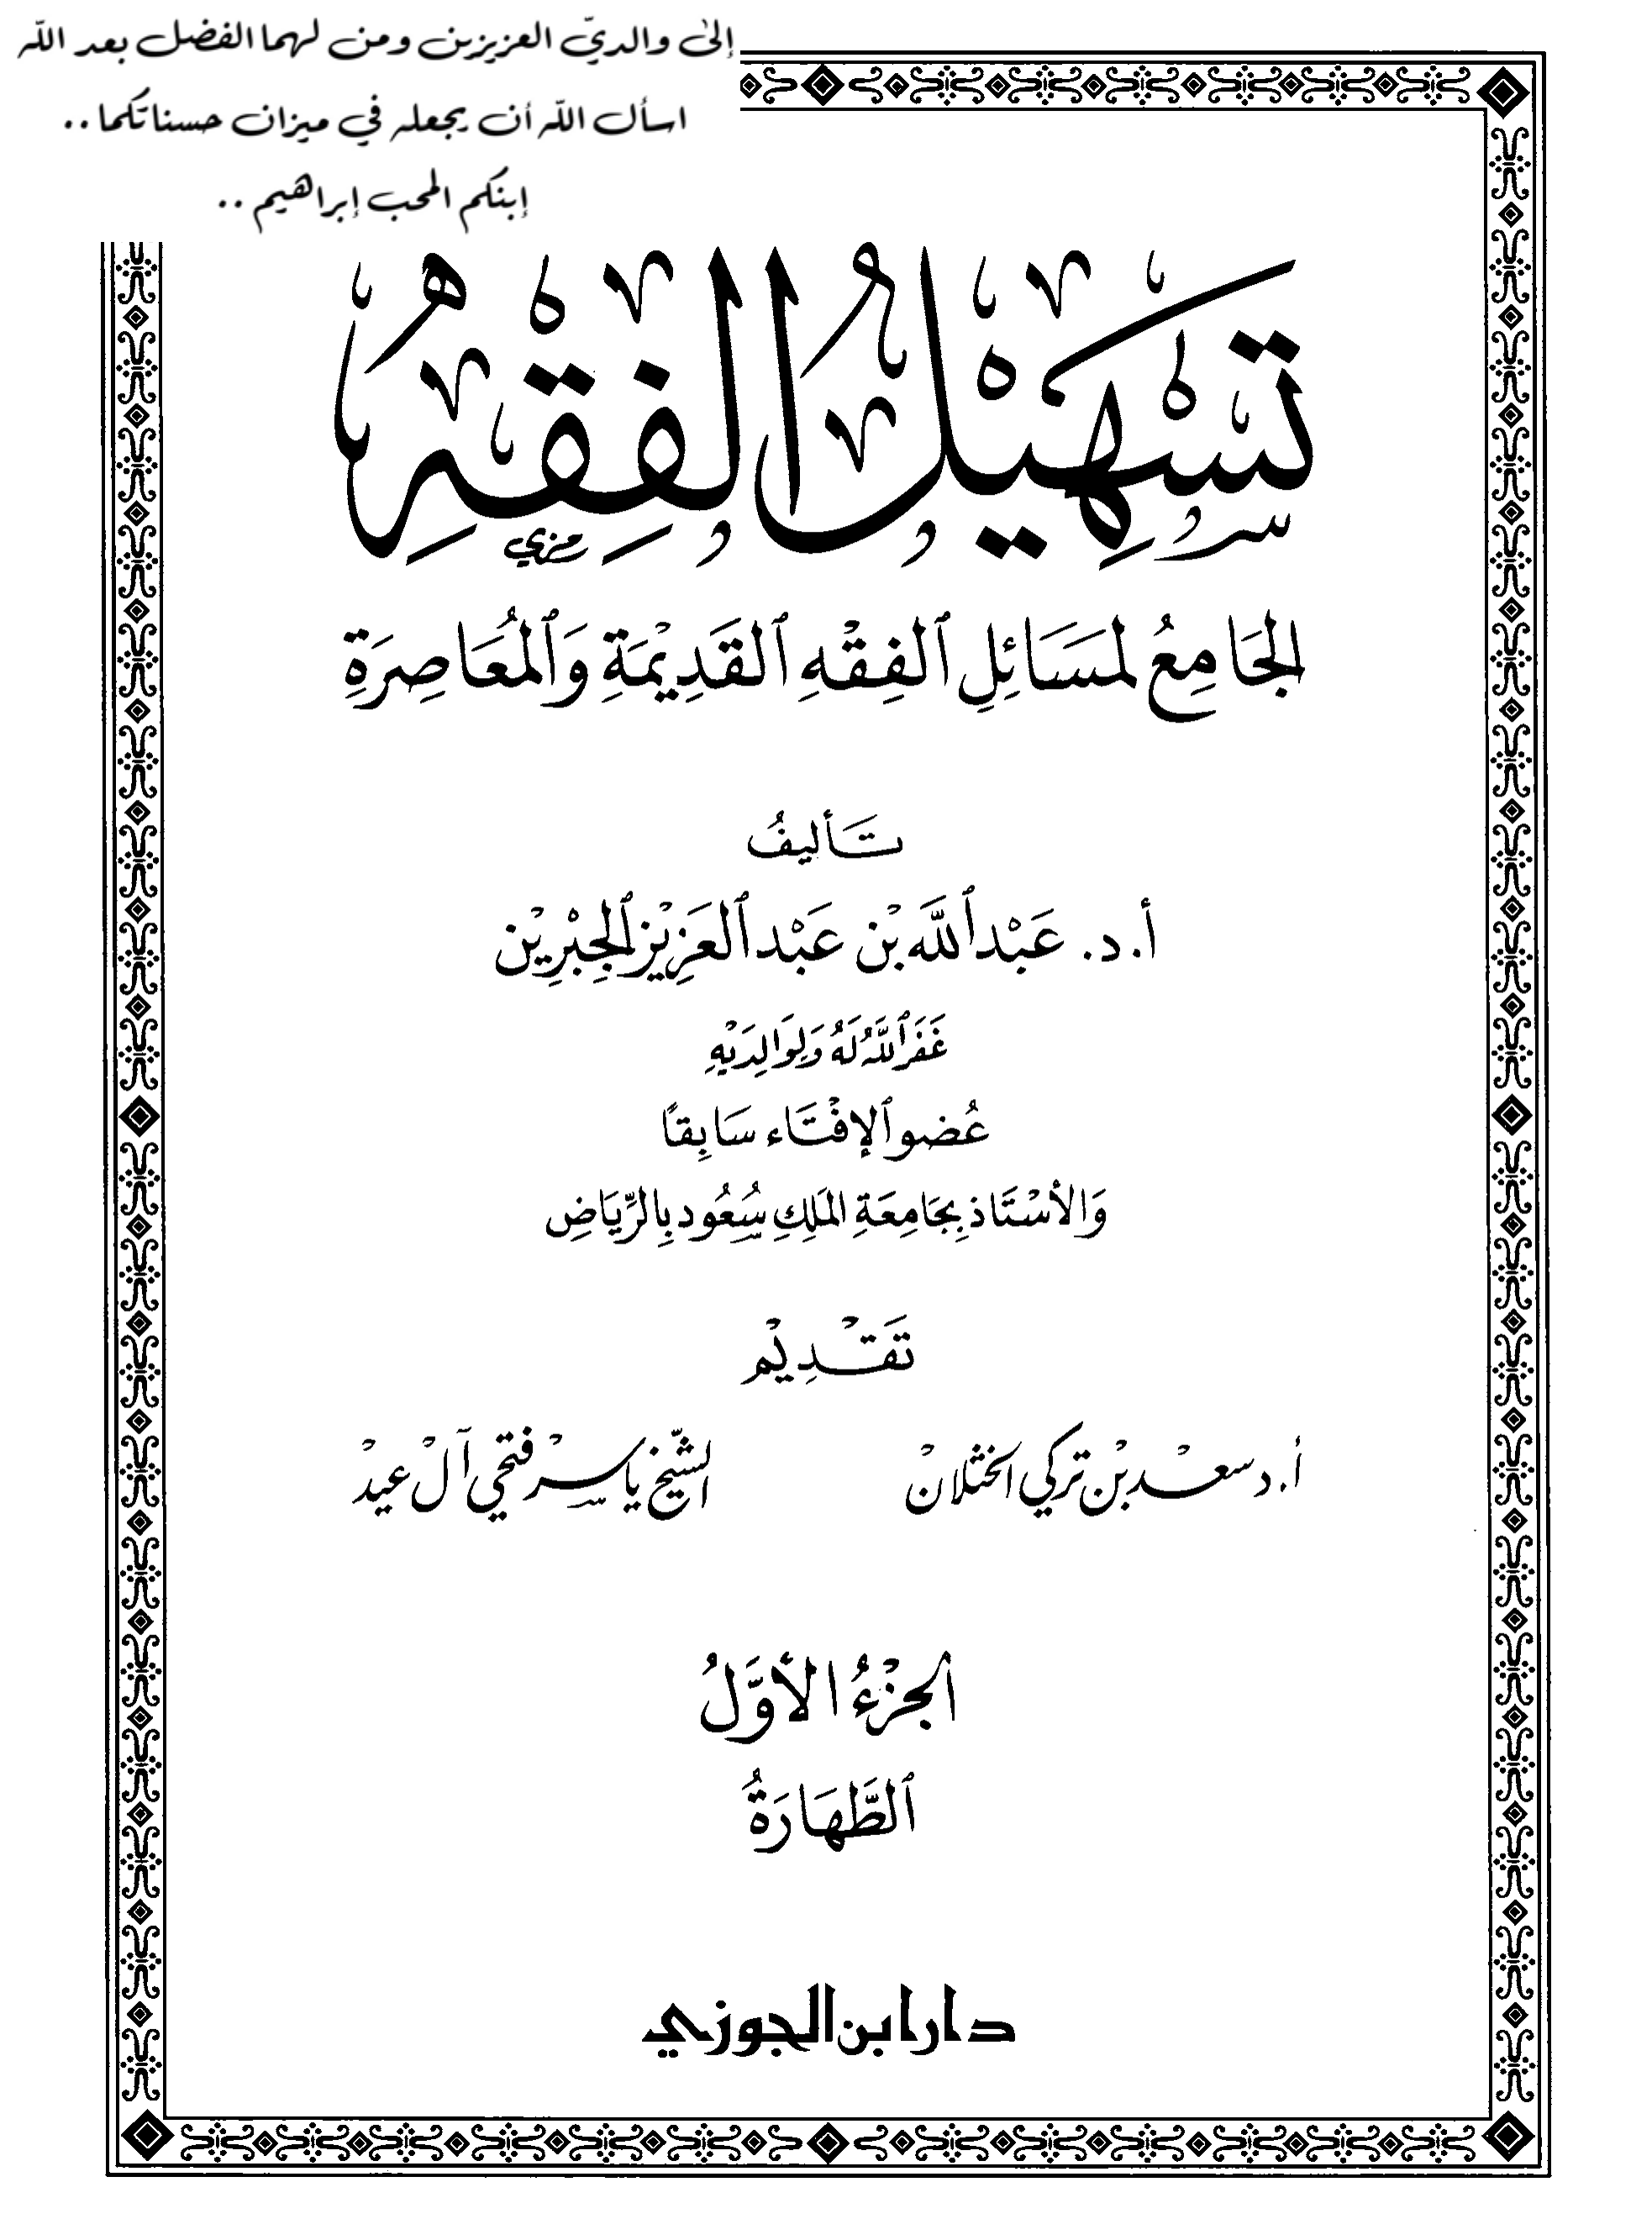 إلى والديّ العزيزين ومن لهما الفضل بعد الله
اسأل الله أن يجعله في ميزان حسناتكما ..
إبنكم المحب إبراهيم ..
تَسْهِيلُ الفِقْهِ
الجَامِعُ لمَسَائِلِ ٱلفِقْهِ ٱلقَدِيْمَةِ وَٱلمُعَاصِرَةِ
تَأليفُ
أ. د. عَبْد ٱللَّه بْن عَبْد ٱلعَزِيْز ٱلجِبْرِيْن
غَفَرَ ٱللَّهُ لَهُ وَلِوَالِدَيْهِ
عُضو ٱلإفْتَاء سَابِقاً
وَالأسْتَاذ بِجَامِعَةِ المَلِكِ سُعُود بِالرِّيَاضِ
تَقْدِيْم
أ. د سعْد بْن تركي الخثْلانْ
الشّيخ ياسرْ فتحي آلْ عيدْ
الجزْءُ الأوَّلُ
ٱلطَّهَارَةُ
دار ابن الجوزي